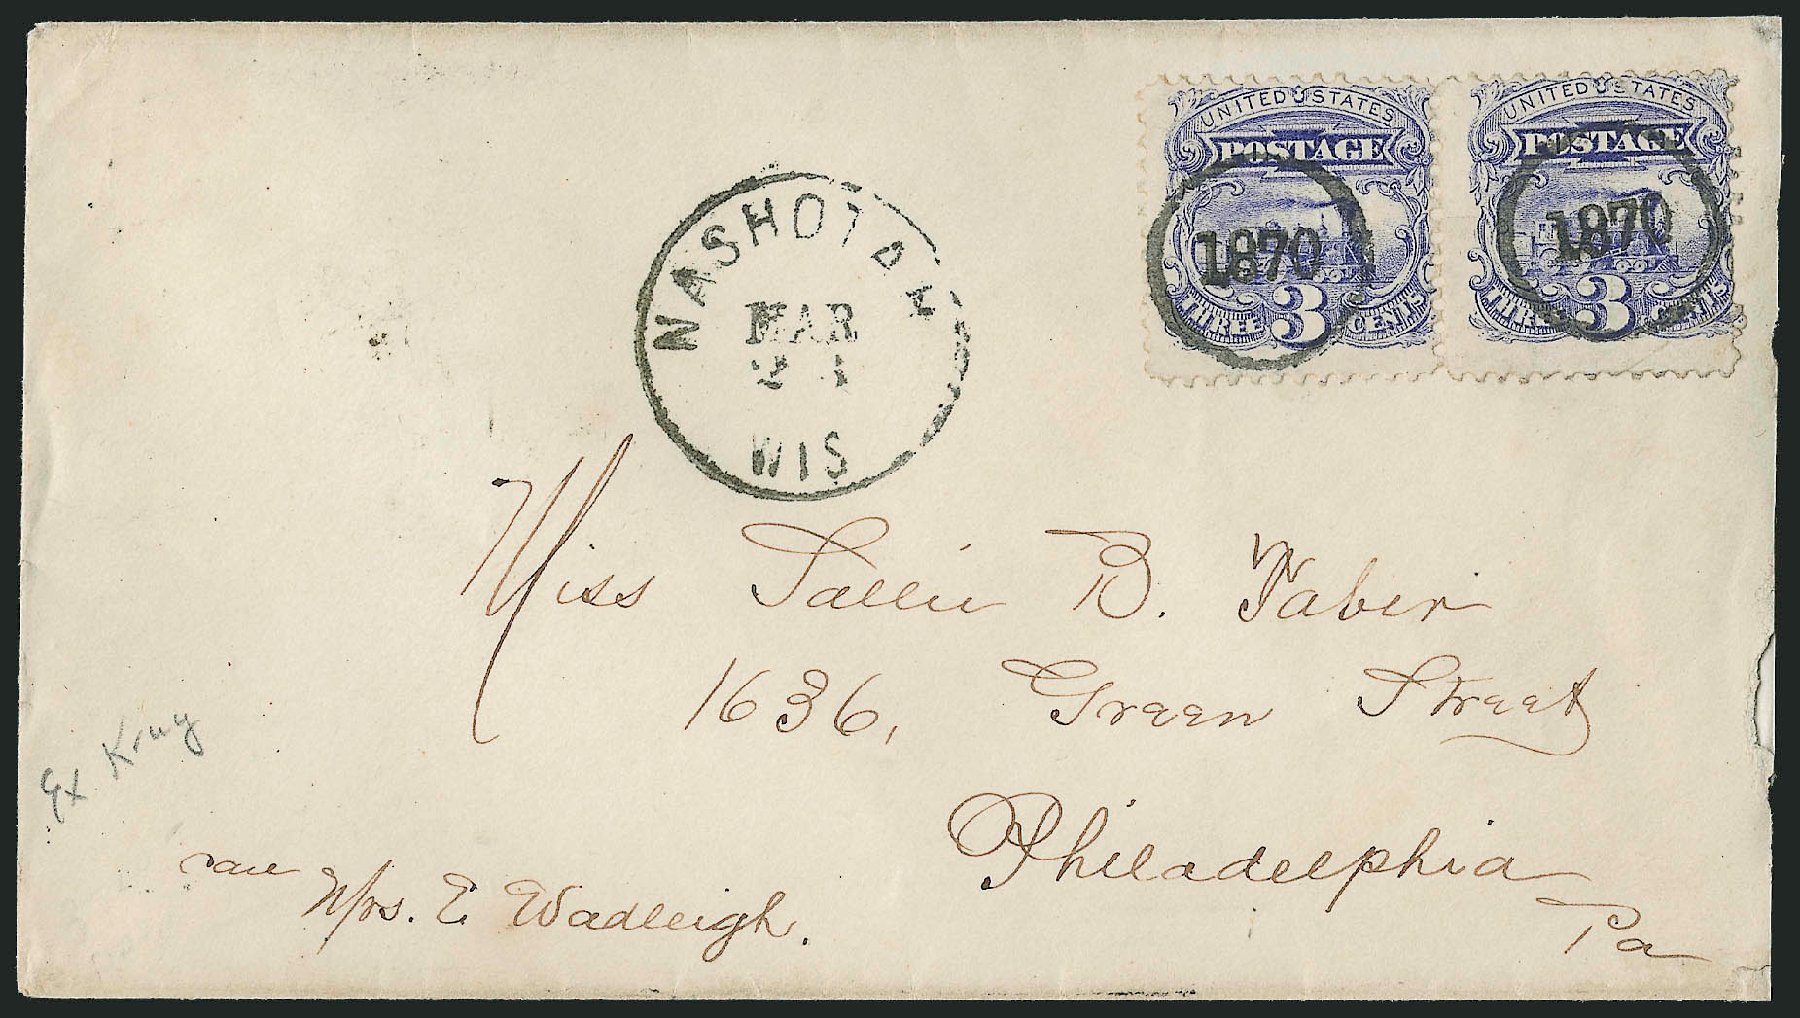 UNITED STATES
POSTAGE
1870
THREE 3 CENTS
UNITED STATES
POSTAGE
1870
THREE 3 CENTS
NASHOTAH
MAR
21
WIS
Miss Sallie B. Faber
1636, Green Street
Philadelphia
Pa
Ex Krug
care
Mrs. E Wadleigh.